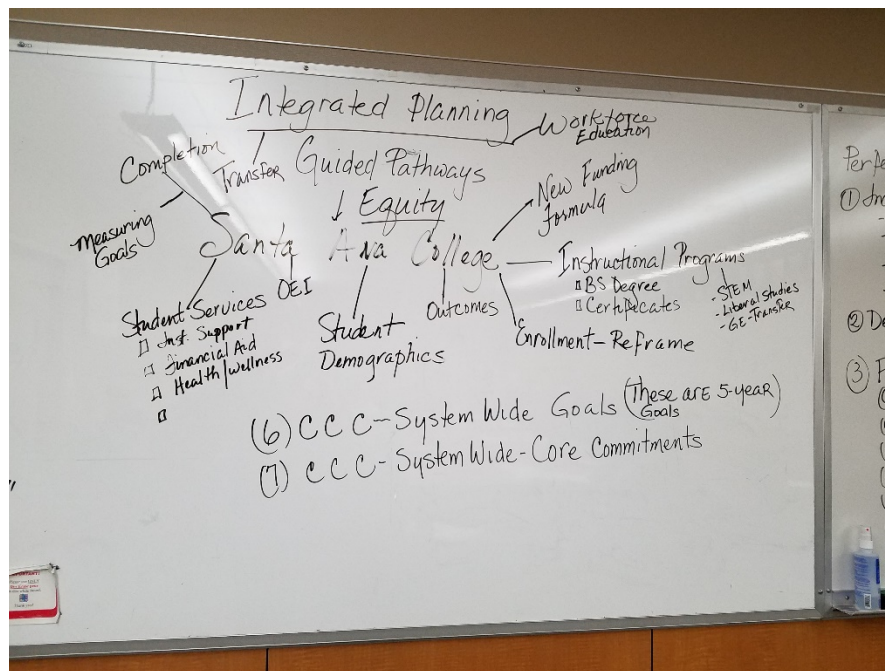 Integrated Planning
Workforce
Education
Completion
Transfer
Guided Pathways
Equity
New Funding
Formula
Measuring
Goals
Santa Ana College
OEI
Outcomes
Instructional Programs
BS Degree
Certificates
- STEM
- Liberal Studies
- GE-Transfer
Student Services
Inst. Support
Financial Aid
Health/Wellness
Student
Demographics
Enrollment-Reframe
(6) CCC-System Wide Goals (These are 5-year
Goals)
(7) CCC-System Wide-Core Commitments
Perfo
①
② De
③